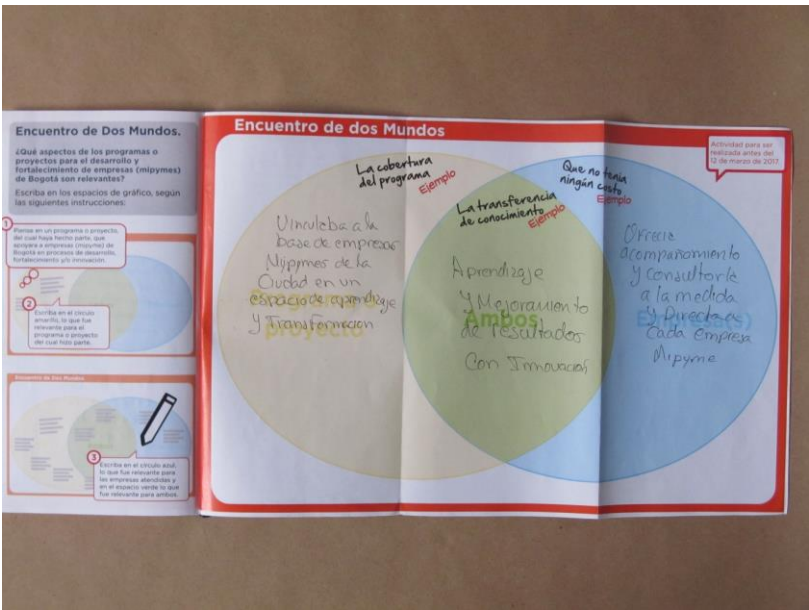 Encuentro de Dos Mundos.
¿Qué aspectos de los programas o
proyectos para el desarrollo y
fortalecimiento de empresas (mipymes)
de Bogotá son relevantes?
Escriba en los espacios de gráfico, según
las siguientes instrucciones:
1
Piense en un programa o proyecto,
del cual haya hecho parte, que
apoyara a empresas (mipyme) de
Bogotá en procesos de desarrollo,
fortalecimiento y/o innovación.
2
Escriba en el círculo
amarillo, lo que fue
relevante para el
programa o proyecto
del cual hizo parte.
Encuentro de Dos Mundos
3
Escriba en el círculo azul,
lo que fue relevante para
las empresas atendidas y
en el espacio verde lo que
fue relevante para ambos.
Encuentro de dos Mundos
Actividad para ser
realizada antes del
12 de marzo de 2017.
La cobertura
del programa
Ejemplo
Vinculaba a la
base de empresas
Mipymes de la
Ciudad en un
espacio de aprendizaje
y Transformacion
proyecto
La transferencia
de conocimiento
Ejemplo
Aprendizaje
y Mejoramiento
Ambos
de resultados
Con Innovación
Que no tenía
ningún costo
Ejemplo
Ofrecia
acompañamiento
y Consultoría
a la medida
y Directa a
Empresa(s)
Cada empresa
Mipyme